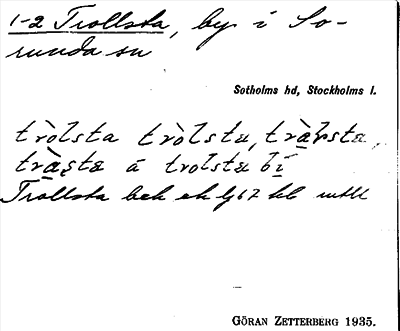 1-2 Trollsta, by i So-
runda sn
Sotholms hd, Stockholms l.
tròlsta tròlstɛ, tràlsta,
tràstɛ á trolstɛ bí
Trollsta bck ek
GÖRAN ZETTERBERG 1935.